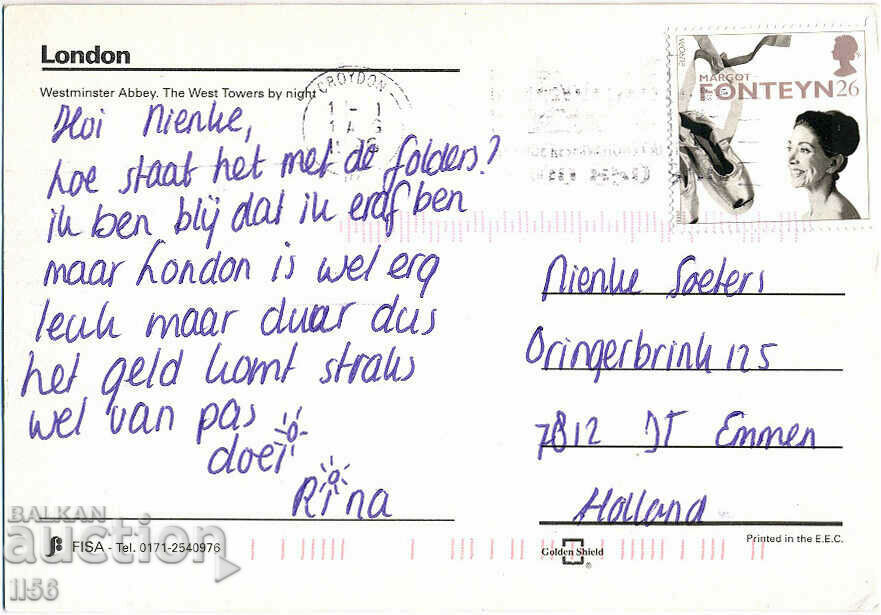 London
Westminster Abbey. The West Towers by night
Hoi Nienke,
hoe staat het met de folders?
ik ben blij dat ik eraf ben
maar London is wel erg
leuk maar duur dus
het geld komt straks
wel van pas
doei
Rina
CROYDON
WOMEN
MARGOT
FONTEYN 26
Nienke Soeters
Oringerbrink 125
7812 JT Emmen
Holland
FISA - Tel. 0171-2540976
Golden Shield
®
Printed in the E.E.C.
BALKAN
auction
1156